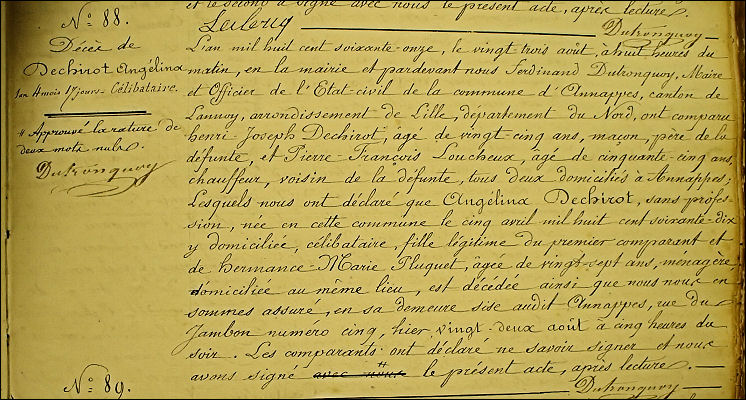 et le second a signé avec nous le présent acte, après lecture.
Leclercq
Dutronquoy
N°. 88.
Décès de
Dechirot Angélina
1 an 4 mois 17 jours - Célibataire.
# Approuvé la rature de
deux mots nuls.
Dutronquoy
L'an mil huit cent soixante-onze, le vingt trois août, à huit heures du
matin, en la mairie et pardevant nous Ferdinand Dutronquoy, Maire
et Officier de l'Etat-civil de la commune d'Annappes, canton de
Lannoy, arrondissement de Lille, département du Nord, ont comparu
henri Joseph Dechirot, âgé de vingt-cinq ans, maçon, père de la
défunte, et Pierre-François Loucheux, âgé de cinquante-cinq ans,
chauffeur, voisin de la défunte, tous deux domiciliés à Annappes;
Lesquels nous ont déclaré que Angélina Dechirot, sans profes-
sion, née en cette commune le cinq avril mil huit cent soixante-dix
y domiciliée, célibataire, fille légitime du premier comparant et
de hermance-Marie Pluquet, âgée de vingt-sept ans, ménagère,
domiciliée au même lieu, est décédée ainsi que nous nous en
sommes assuré, en sa demeure sise audit Annappes, rue du
Jambon numéro cinq, hier vingt-deux août à cinq heures du
soir. Les comparants ont déclaré ne savoir signer et nous
avons signé avec nous # le présent acte, après lecture.
Dutronquoy
N°. 89.